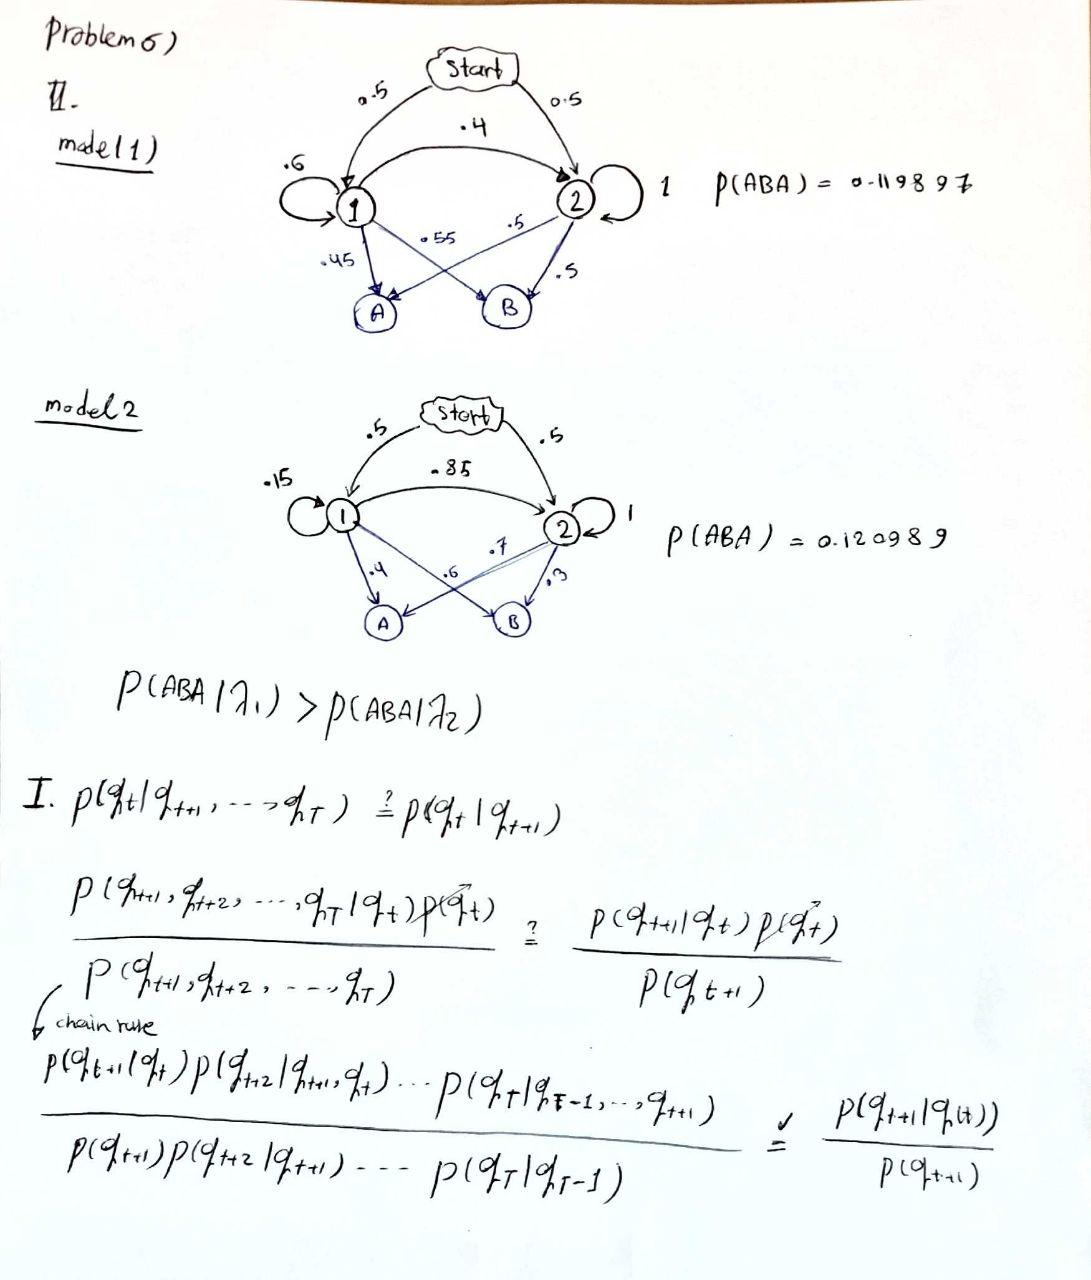 Problem 6)
II.
model 1)
Start
0.5 0.5
.4
.6 1 2 1 P(ABA) = 0.119897
.45 .55 .5 .5
A B
model 2
Start
.5 .5
.85
.15 1 2 1 P(ABA) = 0.120989
.4 .6 .7 .3
A B
P(ABA|λ₁) > P(ABA|λ₂)
I. p(q_t|q_{t+1}, ---, q_T) ≟ p(q_t|q_{t+1})
p(q_{t+1}, q_{t+2}, ---, q_T|q_t) p(q_t) ≟ p(q_{t+1}|q_t) p(q_t)
p(q_{t+1}, q_{t+2}, ---, q_T) p(q_{t+1})
chain rule
p(q_{t+1}|q_t) p(q_{t+2}|q_{t+1}, q_t) ... p(q_T|q_{T-1}, .., q_{t+1}) =✓ p(q_{t+1}|q(t))
p(q_{t+1}) p(q_{t+2}|q_{t+1}) --- p(q_T|q_{T-1}) p(q_{t+1})